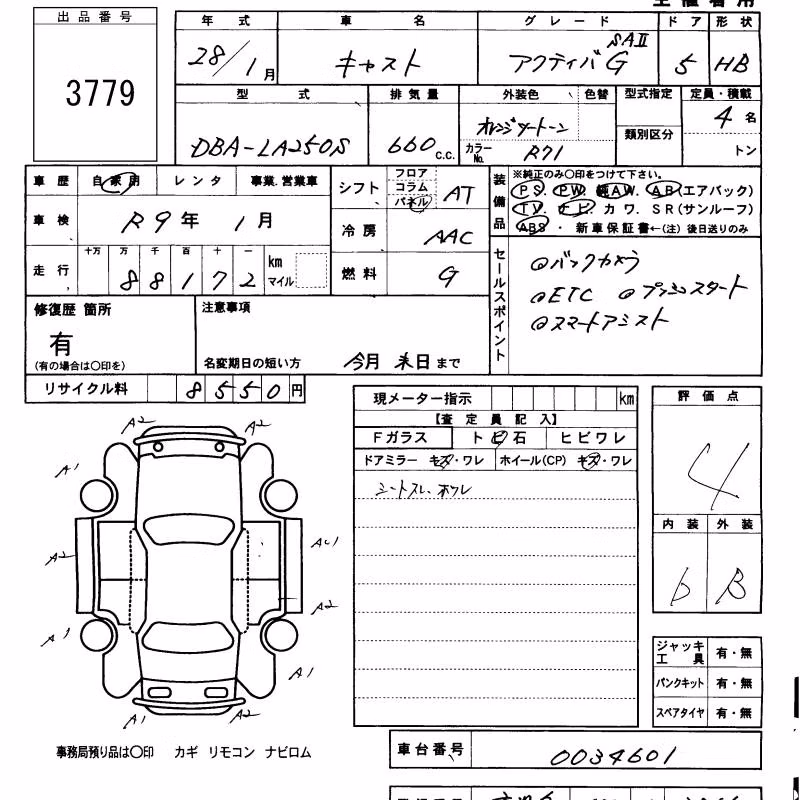 出品番号
3779
年式 車名 グレード ドア 形状
28/1月 キャスト アクティバG SAⅡ 5 HB
型式 排気量 外装色 色替 型式指定 定員・積載
DBA-LA250S 660 c.c. オレンジツートーン 4名
カラーNo. R71 類別区分 トン
車歴 自家用 レンタ 事業.営業車
シフト フロア コラム パネル AT
車検 R9年 1月
冷房 AAC
走行 十万 万 千 百 十 一
88172 km マイル
燃料 G
装備品 ※純正のみ○印をつけて下さい。
PS. PW. 純AW. AB(エアバック)
TV. ナビ. カワ. SR(サンルーフ)
ABS ・ 新車保証書←(注) 後日送りのみ
セールスポイント
◎バックカメラ
◎ETC ◎プッシュスタート
◎スマートアシスト
修復歴 箇所
有
(有の場合は○印を)
注意事項
名変期日の短い方 今月 末日 まで
リサイクル料 8550円
現メーター指示 km
【査定員記入】
Fガラス トビ石 ヒビワレ
ドアミラー キズ・ワレ ホイール(CP) キズ・ワレ
シートスレ、ホツレ
評価点
4
内装 外装
b B
A2 A2
A1 A1
A2 AU1
A2
A1 A1
A1 A2
ジャッキ工具 有・無
パンクキット 有・無
スペアタイヤ 有・無
事務局預り品は○印 カギ リモコン ナビロム
車台番号 0034601